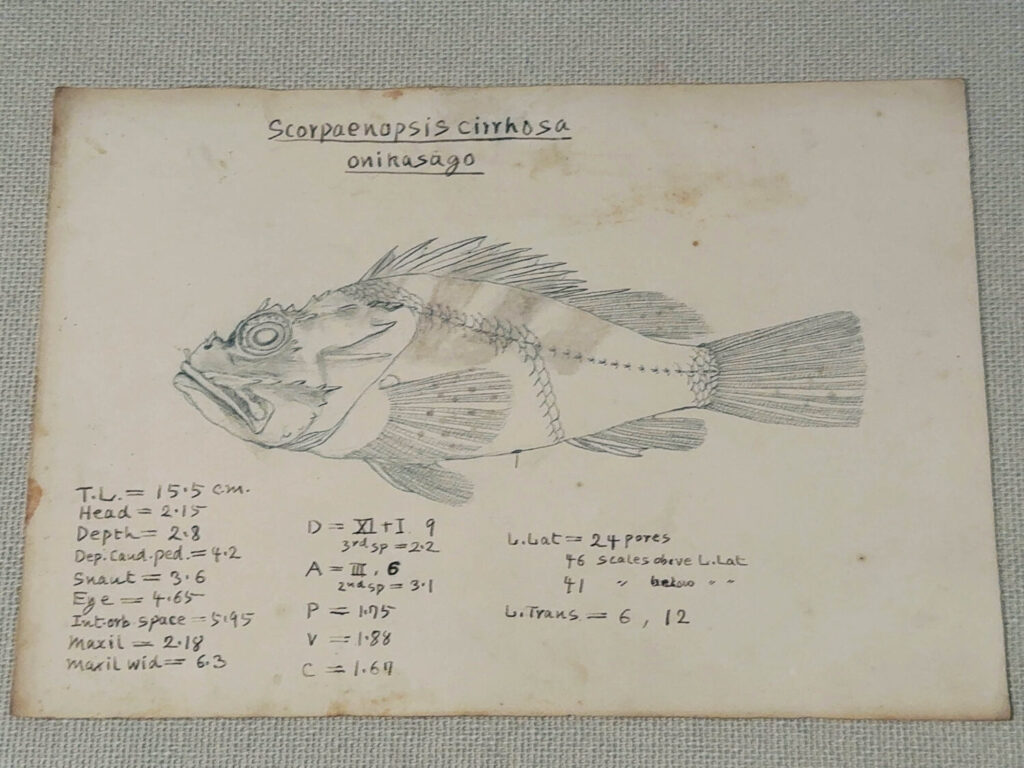 Scorpaenopsis cirrhosa
onikasago
T.L. = 15.5 cm.
Head = 2.15
Depth = 2.8
Dep. Caud. ped. = 4.2
Snout = 3.6
Eye = 4.65
Int.orb space = 5.95
Maxil = 2.18
Maxil wid = 6.3
D = XI + I. 9
3rd sp = 2.2
A = III, 6
2nd sp = 3.1
P = 1.75
V = 1.88
C = 1.67
L.Lat = 24 pores
46 scales above L.Lat
41 " below " "
L.Trans = 6, 12